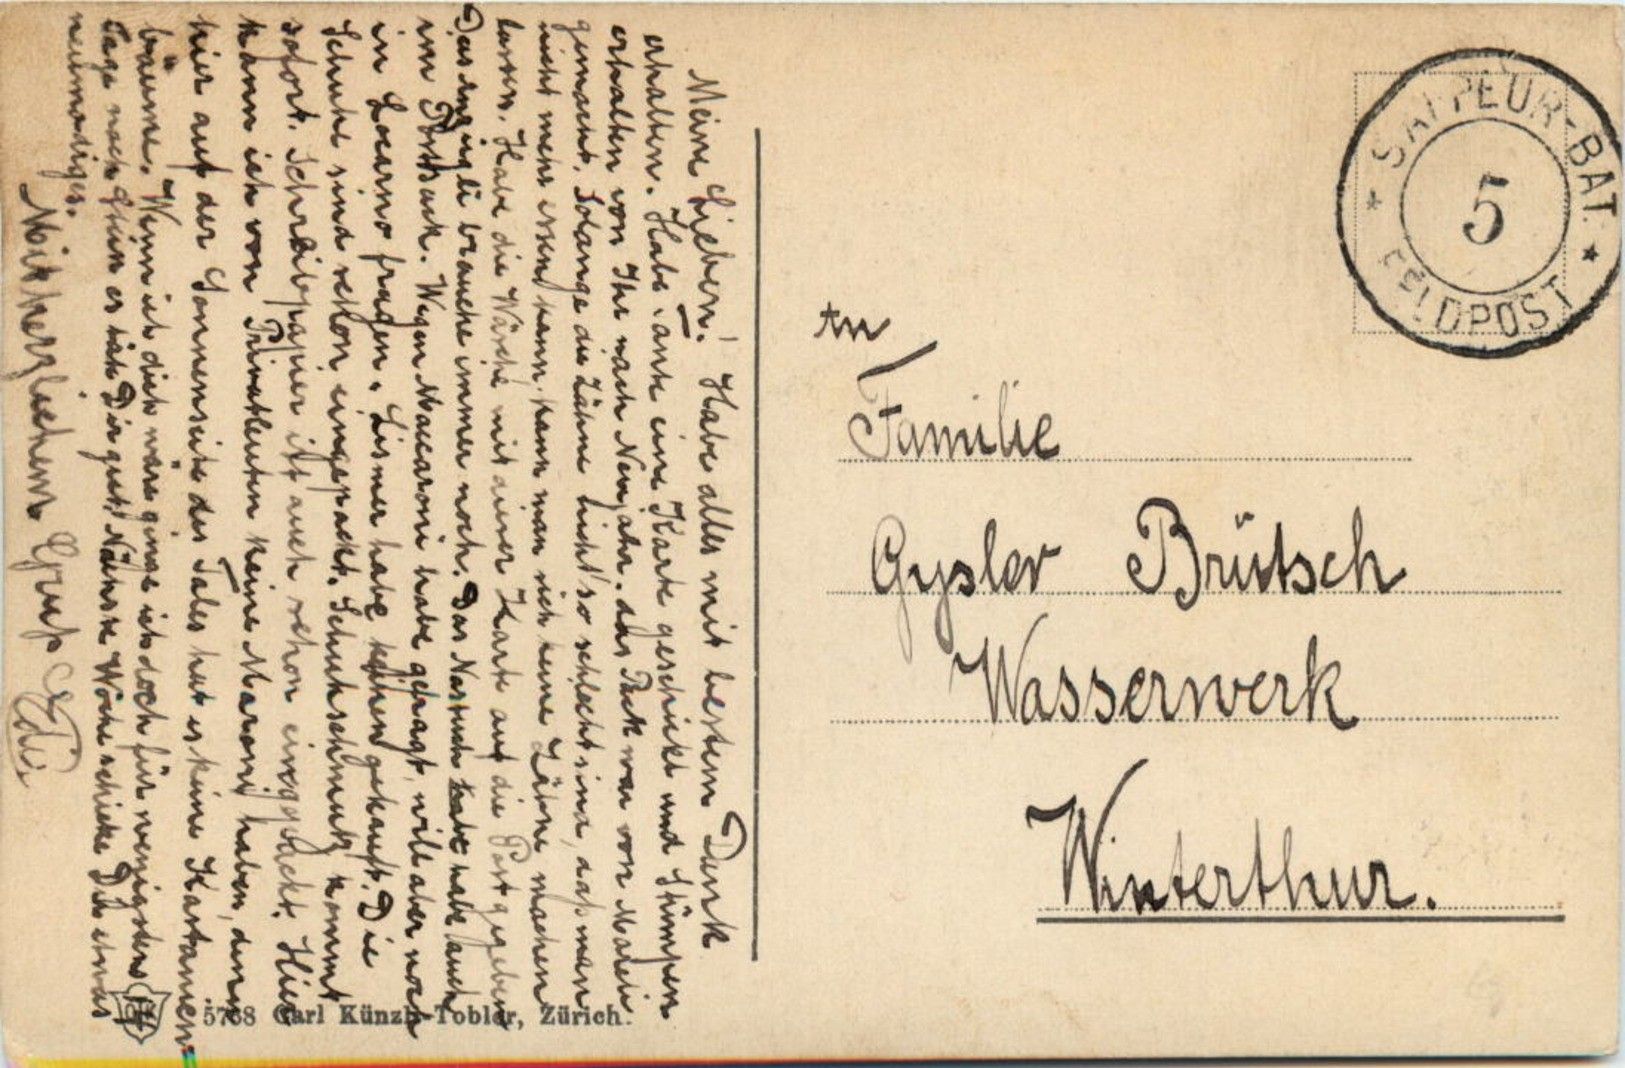 Meine Lieben! Habe alles mit bestem Dank
erhalten. Habe Tante eine Karte geschickt und Stümpen
erhalten von Ihr nach Neujahr. das Pack war von
gemacht. Solange die Zähne nicht so schlecht sind, daß man
nicht mehr essen kann, kann man sich keine Zähne machen
lassen. Habe die Wäsche mit einer Karte auf die Post gegeben
Das brauche immer noch. Das Nastuch habe auch
im Brotsack. Wegen Maccaroni habe gefragt, will aber noch
in Locarno fragen. Lismer habe keinen gekauft. Die
Schuhe sind schon eingepackt. Schuhschmutz kommt
sofort. Schreibpapier ist auch schon eingepackt. Hier
kann ich von Privatleuten keine Maroni haben, denn
hier auf der Sonnenseite des Tales hat es keine Kastanien-
bäume. Wenn ich dich wäre ginge ich doch für wenigstens
Tage nach es Dir gut. Nächste Woche schicke Dir etwas
neumodiges.
Mit herzlichem Gruß Edi
5768 Carl Künzli-Tobler, Zürich.
SAPPEUR-BAT.
5
FELDPOST
An
Familie
Gysler Brütsch
Wasserwerk
Winterthur.